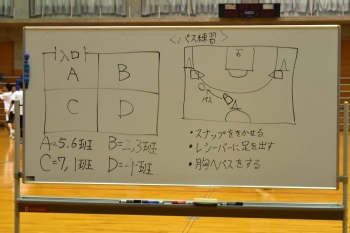 入口
A
B
C
D
A=5,6班 B=2,3班
C=7,1班 D=4班
<パス練習>
パス
・スナップをきかせる
・レシーバーに足を出す
・胸へパスをする